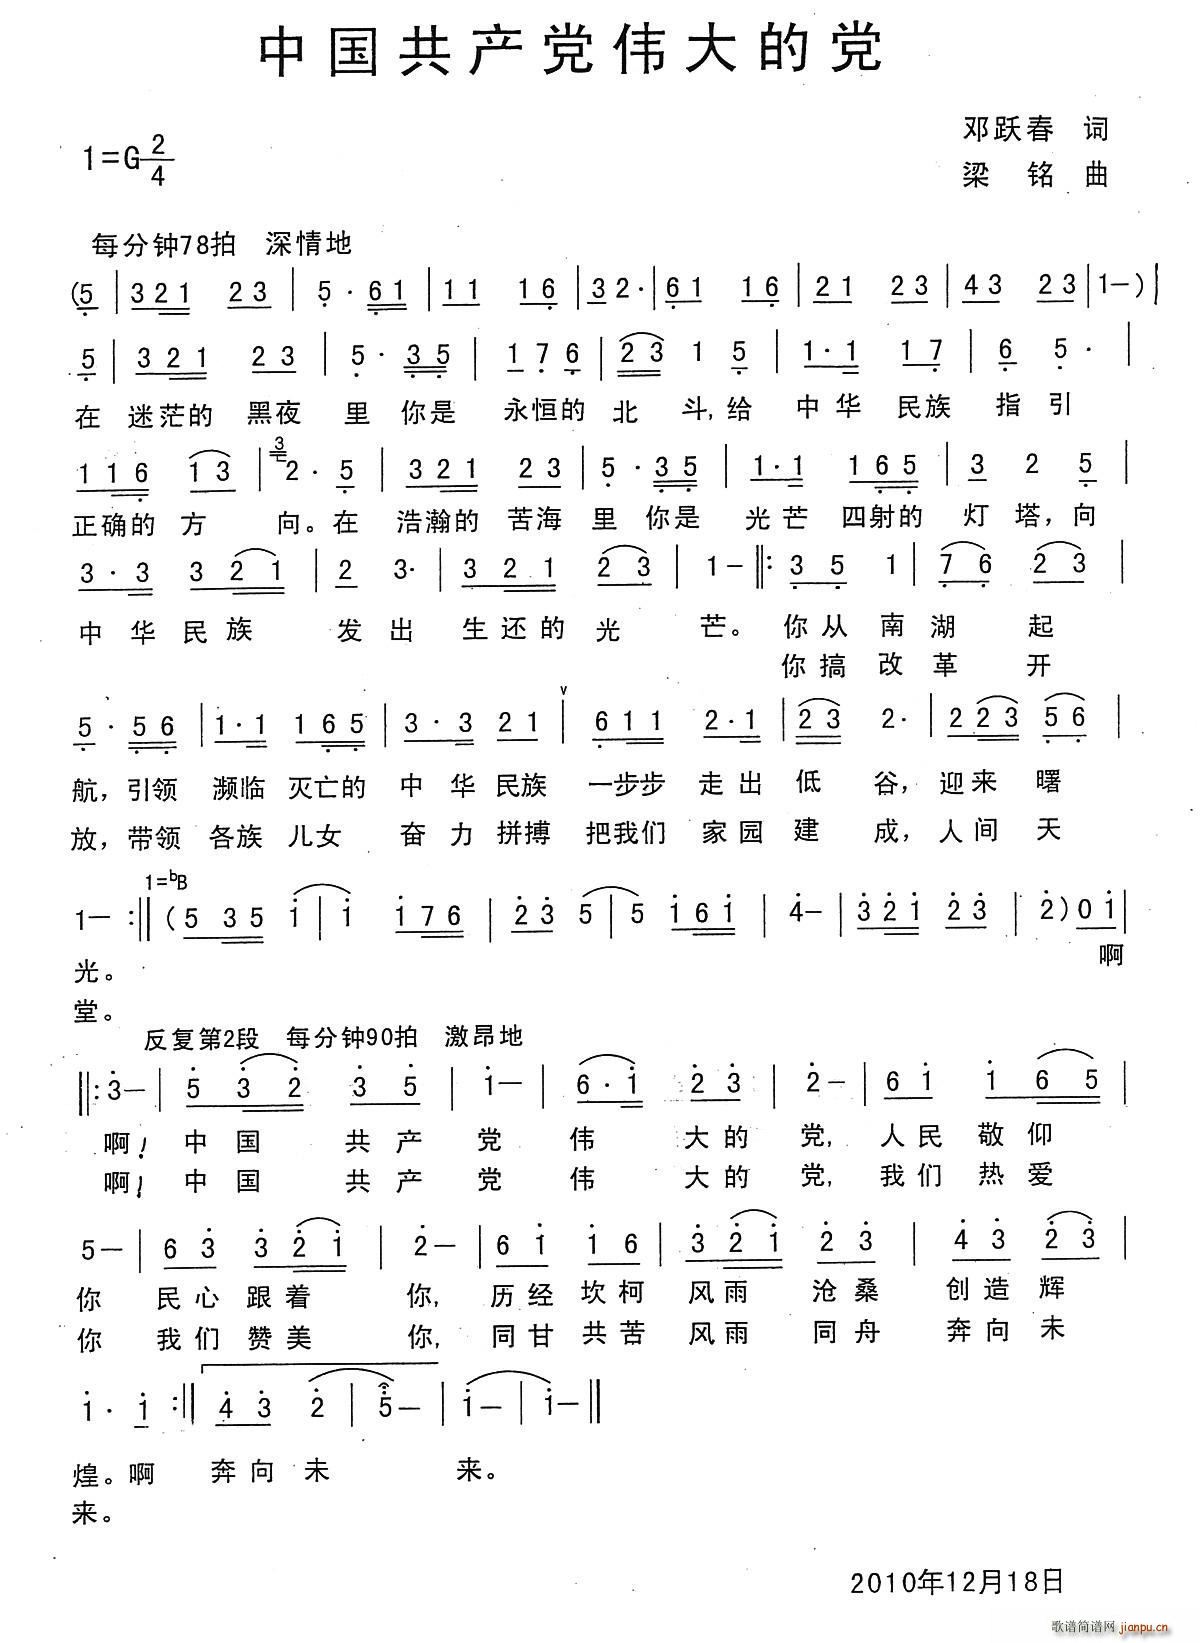 中国共产党伟大的党
邓跃春 词
1=G 2/4
梁 铭 曲
每分钟78拍 深情地
(5 | 321 23 | 5· 61 | 11 16 | 32· | 61 16 | 21 23 | 43 23 | 1—) |
5 | 321 23 | 5· 35 | 176 | 23 1 5 | 1·1 17 | 6 5· |
在 迷茫的 黑夜 里 你是 永恒的 北 斗,给 中华 民族 指引
116 13 | 3 2· 5 | 321 23 | 5· 35 | 1·1 165 | 3 2 5 |
正确的 方 向。在 浩瀚的 苦海 里 你是 光芒 四射的 灯塔,向
3·3 321 | 2 3· | 321 23 | 1— ‖: 35 1 | 76 23 |
中华民族 发出 生还的光 芒。 你从 南湖 起
你搞 改革 开
5· 56 | 1·1 165 | 3·3 21 | v 611 2·1 | 23 2· | 223 56 |
航,引领 濒临 灭亡的 中华 民族 一步步 走出 低 谷,迎来 曙
放,带领 各族 儿女 奋力 拼搏 把我们 家园 建 成,人间 天
1=bB
1— :‖ (535 1 | 1 176 | 23 5 | 5 161 | 4— | 321 23 | 2) 01 |
光。 啊
堂。
反复第2段 每分钟90拍 激昂地
‖: 3— | 532 35 | 1— | 6·1 23 | 2— | 61 165 |
啊! 中国 共产 党 伟 大的 党,人民 敬仰
啊! 中国 共产 党 伟 大的 党,我们 热爱
5— | 63 321 | 2— | 61 16 | 321 23 | 43 23 |
你 民心 跟着 你,历经 坎柯 风雨 沧桑 创造 辉
你 我们 赞美 你,同甘 共苦 风雨 同舟 奔向 未
1· 1 :‖ 43 2 | 5— | 1— | 1— ‖
煌。啊 奔向未 来。
来。
2010年12月18日
歌谱简谱网
jianpu.cn